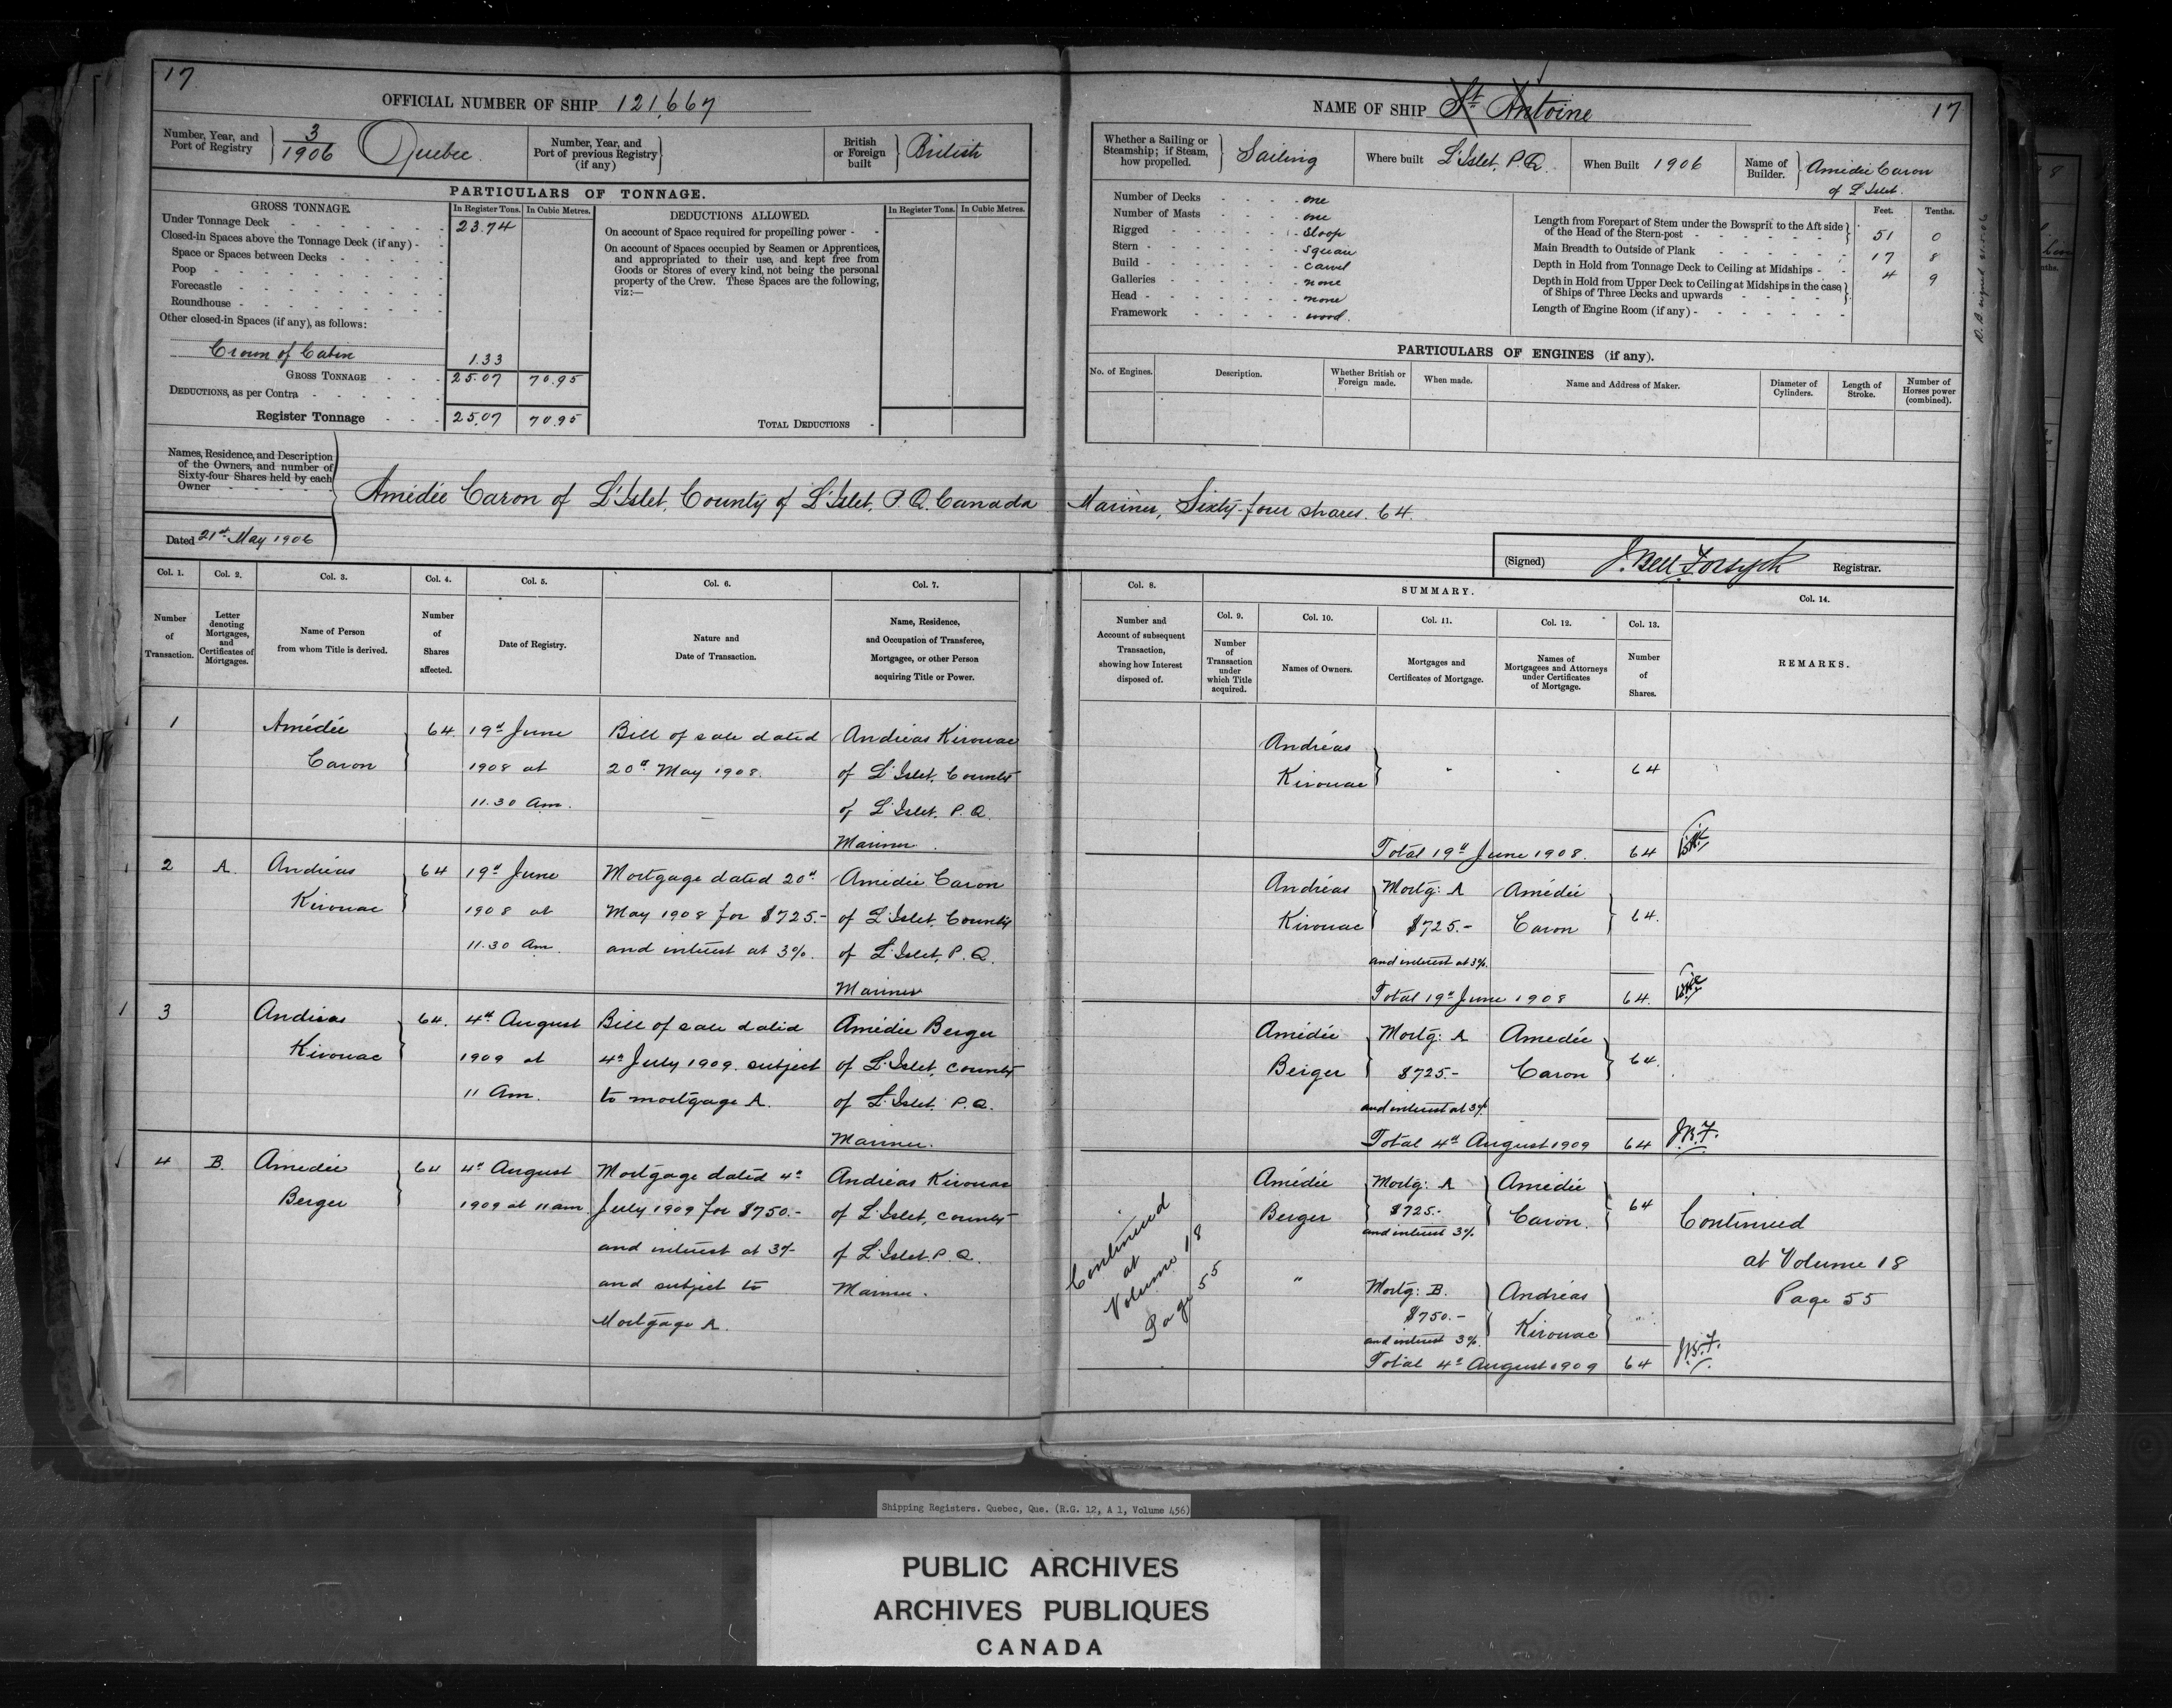 17
OFFICIAL NUMBER OF SHIP 121,667
Number, Year, and Port of Registry 3/1906 Quebec.
Number, Year, and Port of previous Registry (if any)
British or Foreign built British
PARTICULARS OF TONNAGE.
GROSS TONNAGE.
In Register Tons. In Cubic Metres.
DEDUCTIONS ALLOWED.
In Register Tons. In Cubic Metres.
Under Tonnage Deck 23.74
Closed-in Spaces above the Tonnage Deck (if any) -
Space or Spaces between Decks
Poop
Forecastle
Roundhouse
Other closed-in Spaces (if any), as follows:
Crown of Cabin 1.33
GROSS TONNAGE 25.07 70.95
DEDUCTIONS, as per Contra
Register Tonnage 25.07 70.95
On account of Space required for propelling power -
On account of Spaces occupied by Seamen or Apprentices,
and appropriated to their use, and kept free from
Goods or Stores of every kind, not being the personal
property of the Crew. These Spaces are the following,
viz:—
TOTAL DEDUCTIONS -
NAME OF SHIP St Antoine
17
Whether a Sailing or Steamship; if Steam, how propelled. Sailing
Where built L'Islet, P.Q.
When Built 1906
Name of Builder. Amédée Caron
of L'Islet.
Number of Decks one
Number of Masts one
Rigged Sloop
Stern Square
Build Carvel
Galleries none
Head none
Framework wood.
Feet. Tenths.
Length from Forepart of Stem under the Bowsprit to the Aft side
of the Head of the Stern-post 51 0
Main Breadth to Outside of Plank 17 8
Depth in Hold from Tonnage Deck to Ceiling at Midships 4 9
Depth in Hold from Upper Deck to Ceiling at Midships in the case
of Ships of Three Decks and upwards
Length of Engine Room (if any)
PARTICULARS OF ENGINES (if any).
No. of Engines.
Description.
Whether British or Foreign made.
When made.
Name and Address of Maker.
Diameter of Cylinders.
Length of Stroke.
Number of Horses power (combined).
Names, Residence, and Description
of the Owners, and number of
Sixty-four Shares held by each
Owner
Amédée Caron of L'Islet, County of L'Islet, P.Q. Canada Mariner, Sixty-four shares. 64.
Dated 21st May 1906
(Signed) J. Bell Forsyth Registrar.
Col. 1.
Number of Transaction.
Col. 2.
Letter denoting Mortgages, and Certificates of Mortgages.
Col. 3.
Name of Person from whom Title is derived.
Col. 4.
Number of Shares affected.
Col. 5.
Date of Registry.
Col. 6.
Nature and Date of Transaction.
Col. 7.
Name, Residence, and Occupation of Transferee, Mortgagee, or other Person acquiring Title or Power.
Col. 8.
Number and Account of subsequent Transaction, showing how Interest disposed of.
SUMMARY.
Col. 9.
Number of Transaction under which Title acquired.
Col. 10.
Names of Owners.
Col. 11.
Mortgages and Certificates of Mortgage.
Col. 12.
Names of Mortgagees and Attorneys under Certificates of Mortgage.
Col. 13.
Number of Shares.
Col. 14.
REMARKS.
1 Amédée 64. 19th June Bill of sale dated Andréas Kirouac
Caron 1908 at 20th May 1908. of L'Islet, County
11.30 Am. of L'Islet, P.Q.
Mariner.
Andréas
Kirouac 64
Total 19th June 1908. 64
2 A. Andréas 64 19th June Mortgage dated 20th Amédée Caron
Kirouac 1908 at May 1908 for $725.- of L'Islet, County
11.30 Am. and interest at 3%. of L'Islet, P.Q.
Mariner
Andréas Mortg: A Amédée
Kirouac $725.- Caron 64.
and interest at 3%.
Total 19th June 1908 64.
3 Andréas 64. 4th August Bill of sale dated Amédée Berger
Kirouac 1909 at 4th July 1909 subject of L'Islet, County
11 Am. to mortgage A. of L'Islet, P.Q.
Mariner.
Amédée Mortg: A Amedée
Berger $725.- Caron 64.
and interest at 3%
Total 4th August 1909 64 J.B.F.
4 B. Amédée 64 4th August Mortgage dated 4th Andréas Kirouac
Berger 1909 at 11 am. July 1909 for $750.- of L'Islet, County
and interest at 3% of L'Islet P.Q.
and subject to Mariner.
Mortgage A.
Continued
at
Volume 18
Page 55
Amédée Mortg: A Amédée
Berger $725.- Caron. 64
and interest 3%.
" Mortg: B. Andréas
$750.- Kirouac "
and interest 3%.
Total 4th August 1909 64 J.B.F.
Continued
at Volume 18
Page 55
Shipping Registers. Quebec, Que. (R.G. 12, A 1, Volume 456)
PUBLIC ARCHIVES
ARCHIVES PUBLIQUES
CANADA